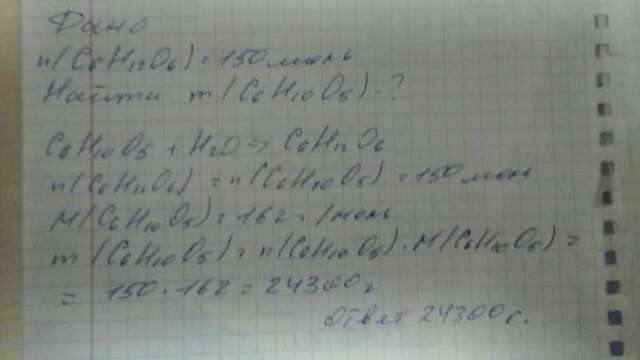 Дано
n(C6H12O6) = 150 моль
Найти m(C6H10O5)-?
C6H10O5 + H2O → C6H12O6
n(C6H12O6) = n(C6H10O5) = 150 моль
M(C6H10O5) = 162 г/моль
m(C6H10O5) = n(C6H10O5) · M(C6H10O5) =
= 150 · 162 = 24300 г
Ответ 24300 г.